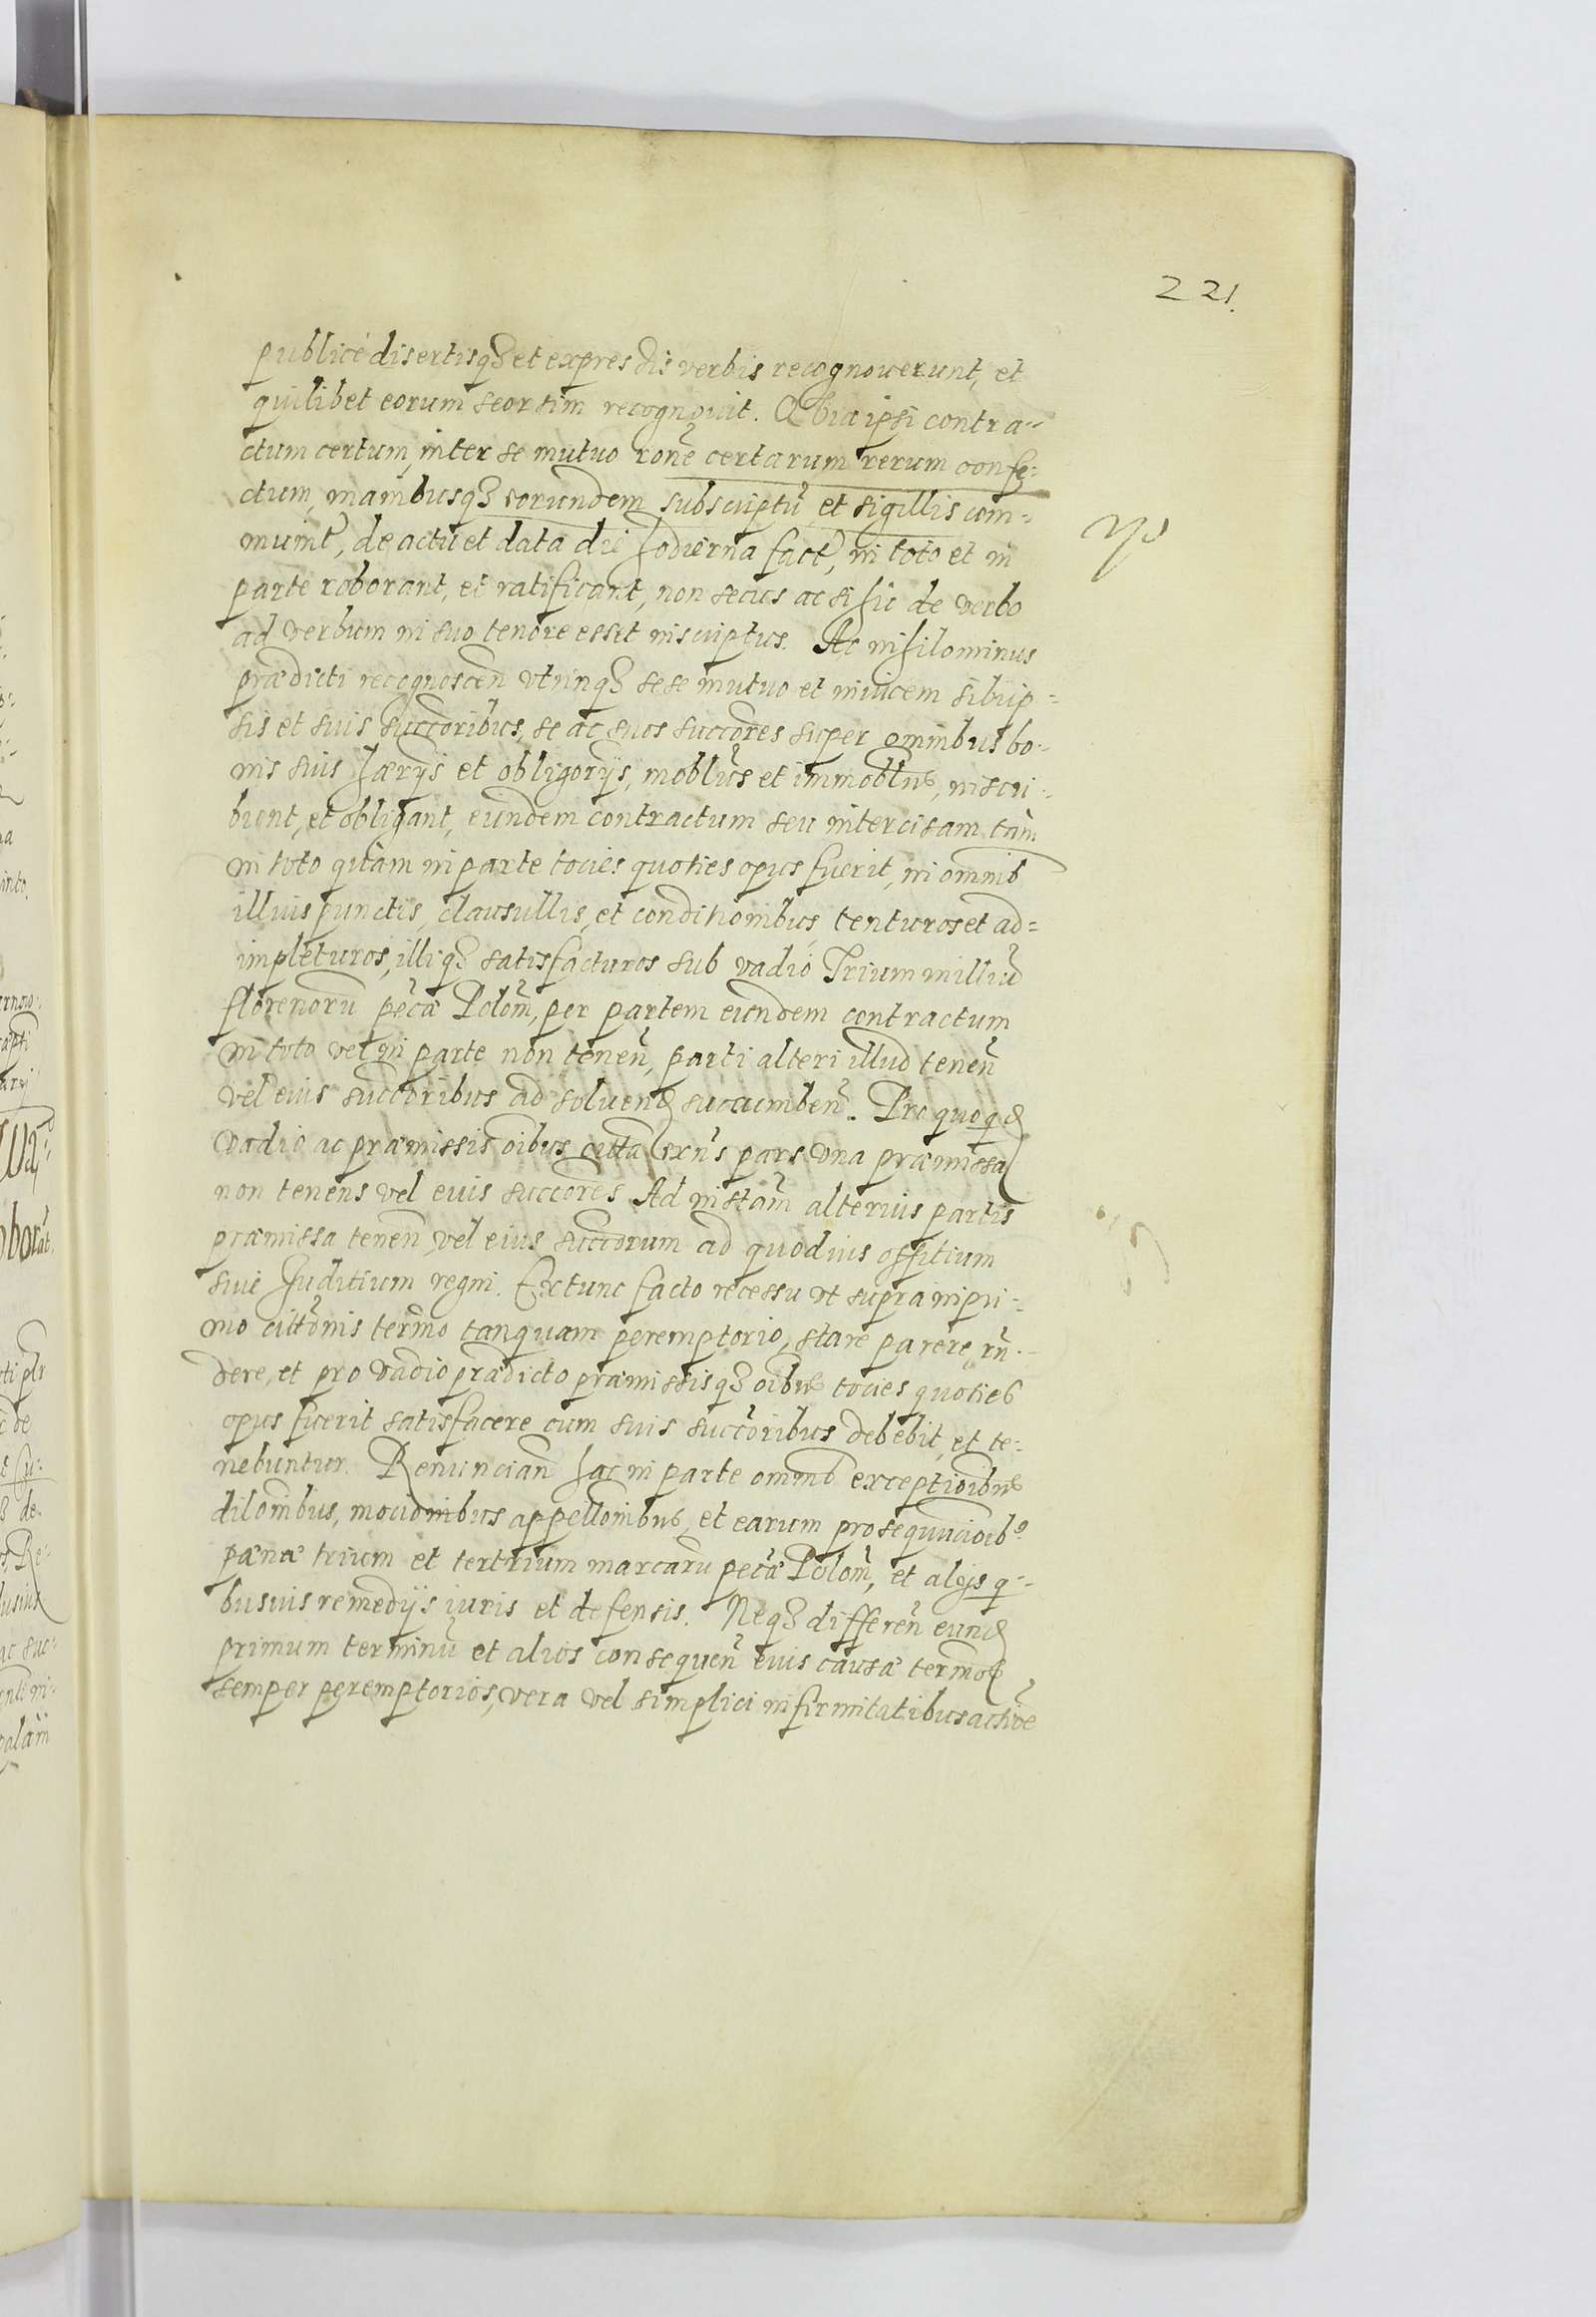 221.
publicè disertisq3 et expressis verbis recognouerunt, et
quilibet eorum seorsim recognouit. Quia ipsi contra=
ctum certum, inter se mutuo rone certarum rerum confe=
ctum, manibusq3 eorundem subscriptu, et sigillis com=
munit, de actu et data die hodierna fact, in toto et in
parte roborant, et ratificant, non secus ac si hic de verbo
ad verbum in suo tenore esset inscriptus. Ac nihilominus
prædicti recognoscen vtrinq3 sese mutuo et inuicem sibiip=
sis et suis succoribus, se ac suos succores super omnibus bo=
nis suis hærijs et obligorijs, moblius et immoblibus, inscri=
bunt, et obligant, eundem contractum seu intercisam tam
in toto quàm in parte tocies quoties opus fuerit, in omnib
illius punctis, clausullis, et conditionibus tenturos et ad=
impleturos, illiq3 satisfacturos sub vadio Trium milliu
florenoru peca Polom, per partem eundem contractum
in toto vel in parte non tenen, parti alteri illud tenen
vel eius succoribus ad soluend succumben. Pro quoqd
vadio ac præmissis oibus citta exns pars vna præmissa
non tenens vel euis succores Ad instam alterius partis
præmissa tenen vel eius succorum ad quoduis offitium
siue Juditium regni. Extunc facto recessu vt supra in pri=
mo cittonis termo tanquam peremptorio, stare parere rn=
dere, et pro vadio prædicto præmissisq3 oibus tocies quoties
opus fuerit satisfacere cum suis succoribus debebit et te=
nebuntur. Renuncian hac in parte omnib exceptioibus
dilombus, mocionibus appellonibus, et earum prosequucioib9
pæna trium et tertrium marcaru peca Polom, et alijs q=
busuis remedijs iuris et defensis. Neq3 differen eund
primum terminu et alios consequen euis causæ termos
semper peremptorios, vera vel simplici infirmitatibus actione